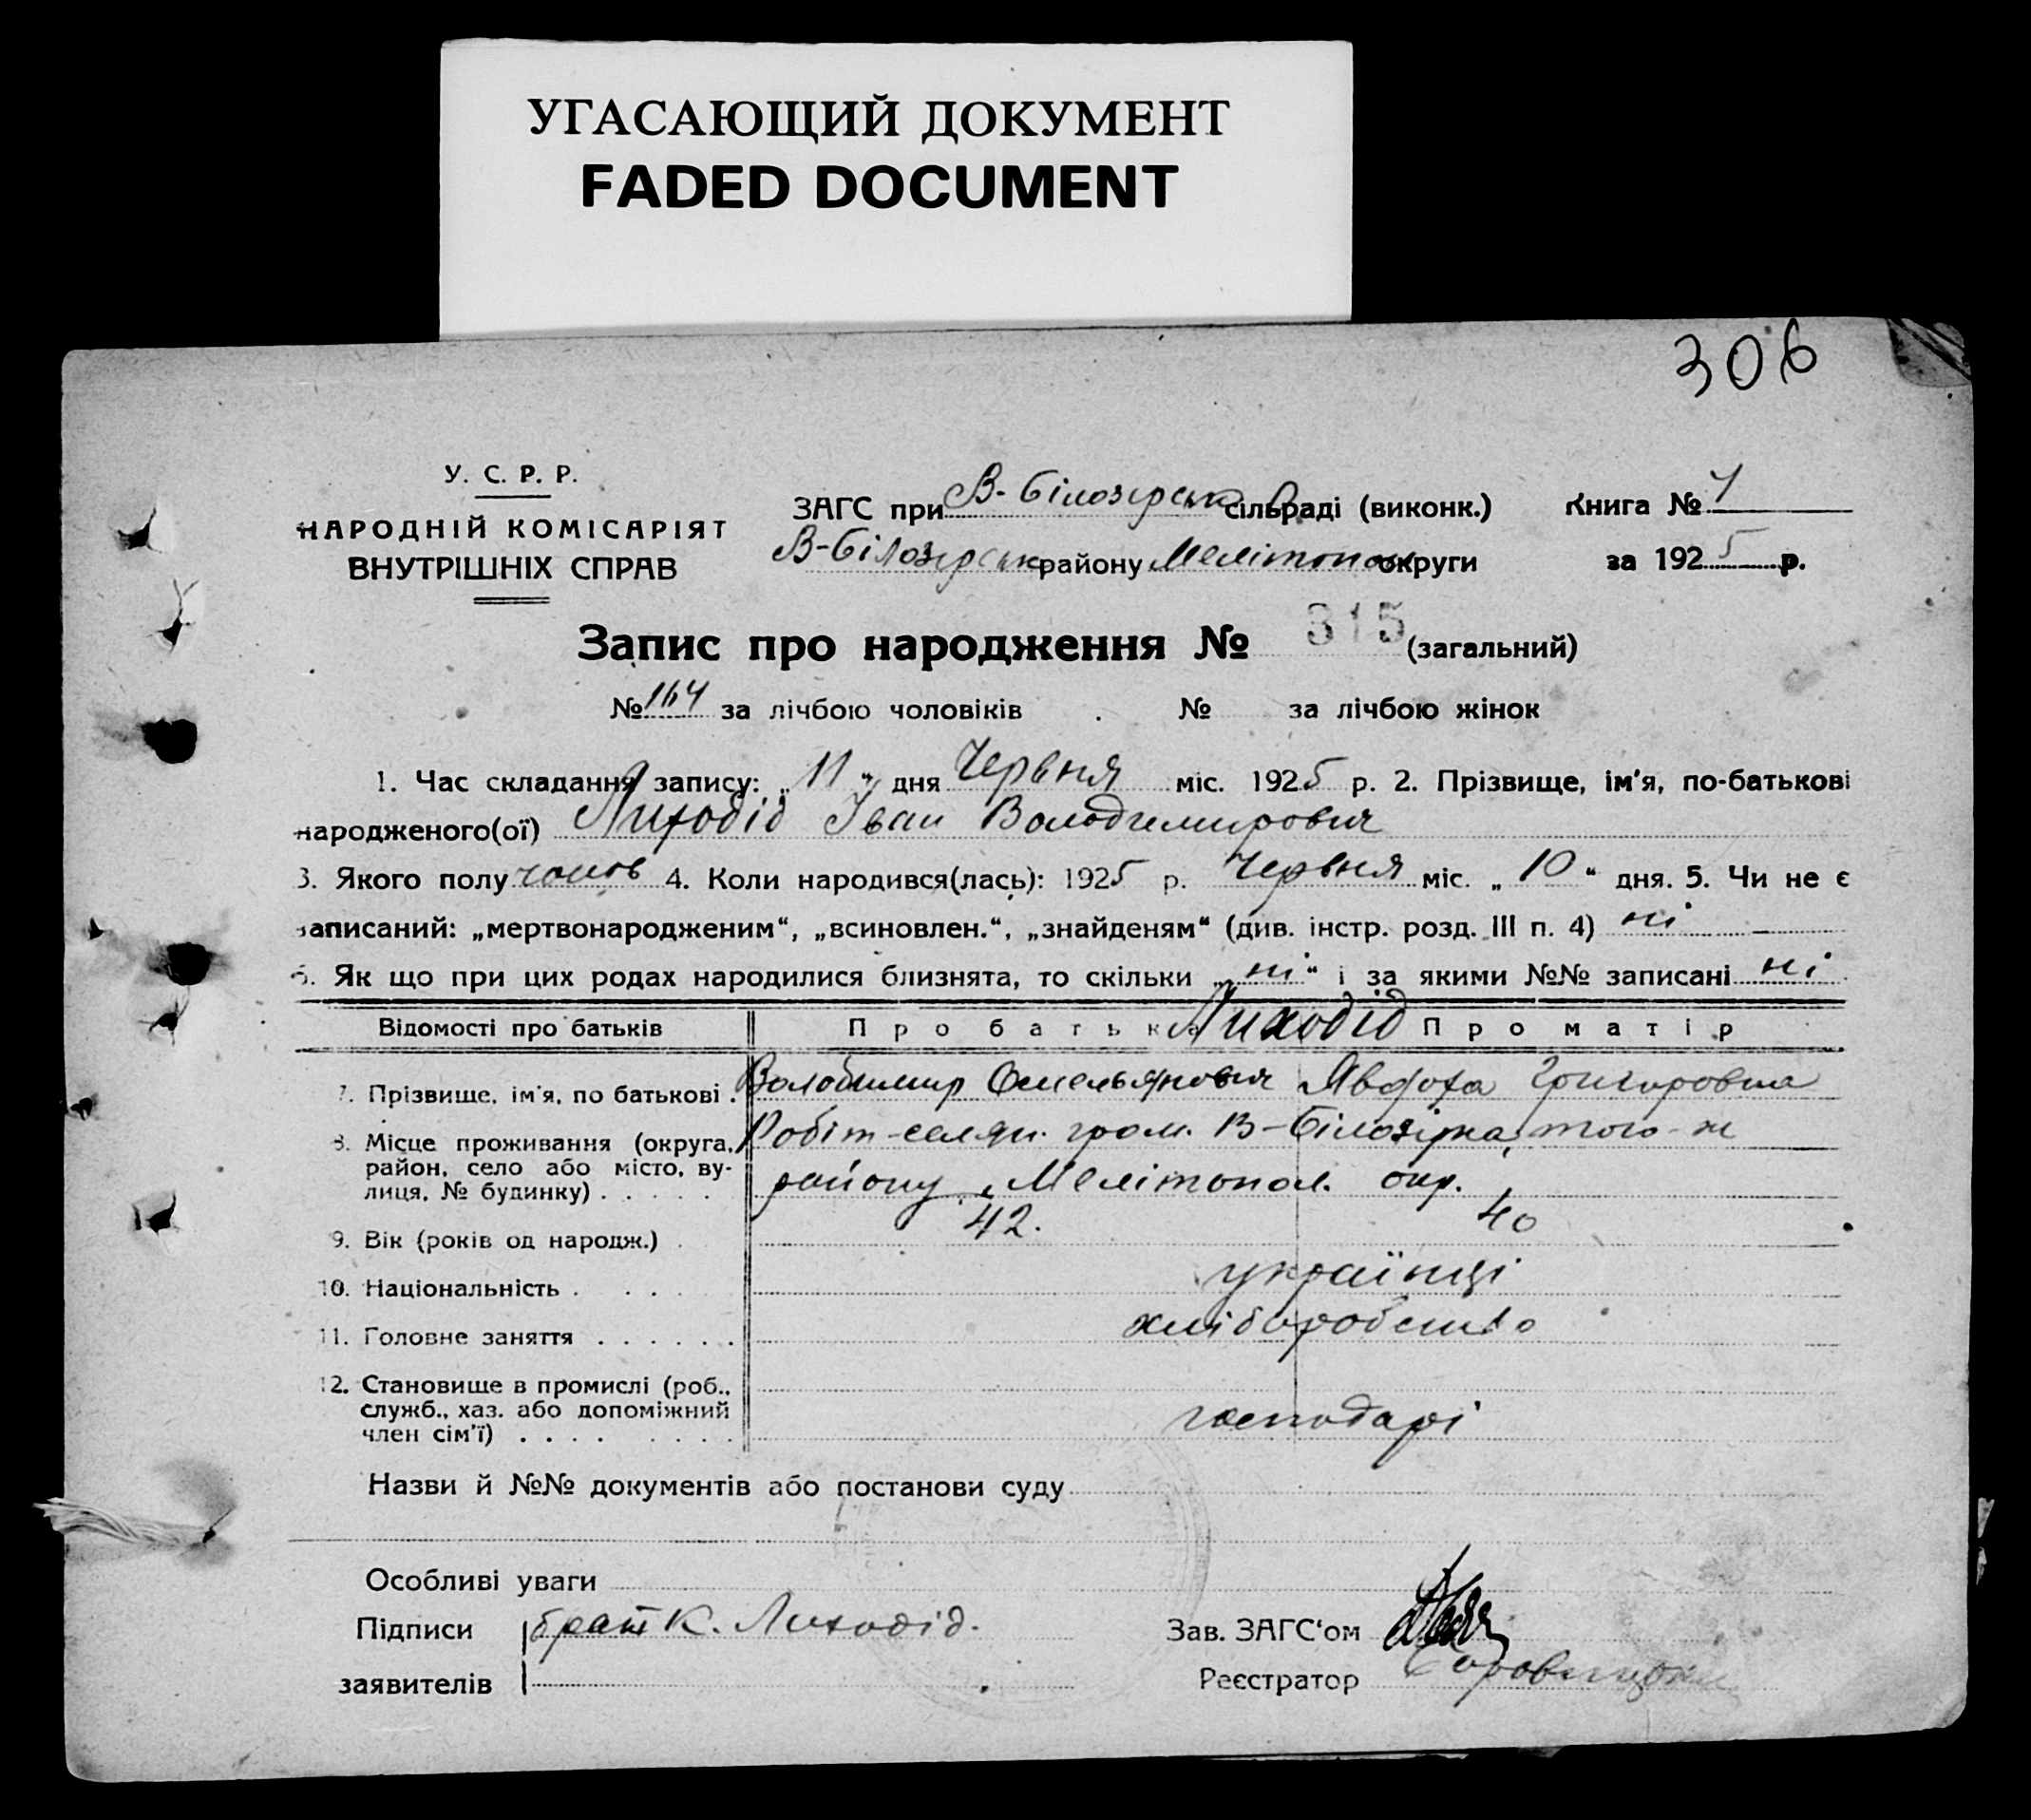 УГАСАЮЩИЙ ДОКУМЕНТ
FADED DOCUMENT
306
У. С. Р. Р.
НАРОДНІЙ КОМІСАРІЯТ
ВНУТРІШНІХ СПРАВ
ЗАГС при В-Білозірськ сільраді (виконк.)
Книга № 1
В-Білозірськ району Мелітопол округи
за 1925 р.
Запис про народження № 315 (загальний)
№ 164 за лічбою чоловіків . № за лічбою жінок
1. Час складання запису: „11“ дня Червня міс. 1925 р. 2. Прізвище, ім'я, по-батькові
народженого(ої) Лиходід Іван Володимирович
3. Якого полу чолов 4. Коли народився(лась): 1925 р. Червня міс. „10“ дня. 5. Чи не є
записаний: „мертвонародженим“, „всиновлен.“, „знайденям“ (див. інстр. розд. III п. 4) ні
6. Як що при цих родах народилися близнята, то скільки „ні“ і за якими №№ записані ні
Відомості про батьків Про батька Лиходід Про матір
7. Прізвище, ім'я, по батькові . Володимир Омельянович Явдоха Григоровна
8. Місце проживання (округа, район, село або місто, ву-
лиця, № будинку) . . . . .
Робіт-селян. гром. В-Білозірка, того-ж
району, Мелітопол. окр.
9. Вік (років од народж.) . 42. 40
10. Національність . . . . українці
11. Головне заняття . . . . . . хліборобство
12. Становище в промислі (роб.,
служб., хаз. або допоміжний
член сім'ї) . . . . . . . . господарі
Назви й №№ документів або постанови суду
Особливі уваги
Підписи брат К. Лиходід.
заявителів
Зав. ЗАГС'ом
Реєстратор